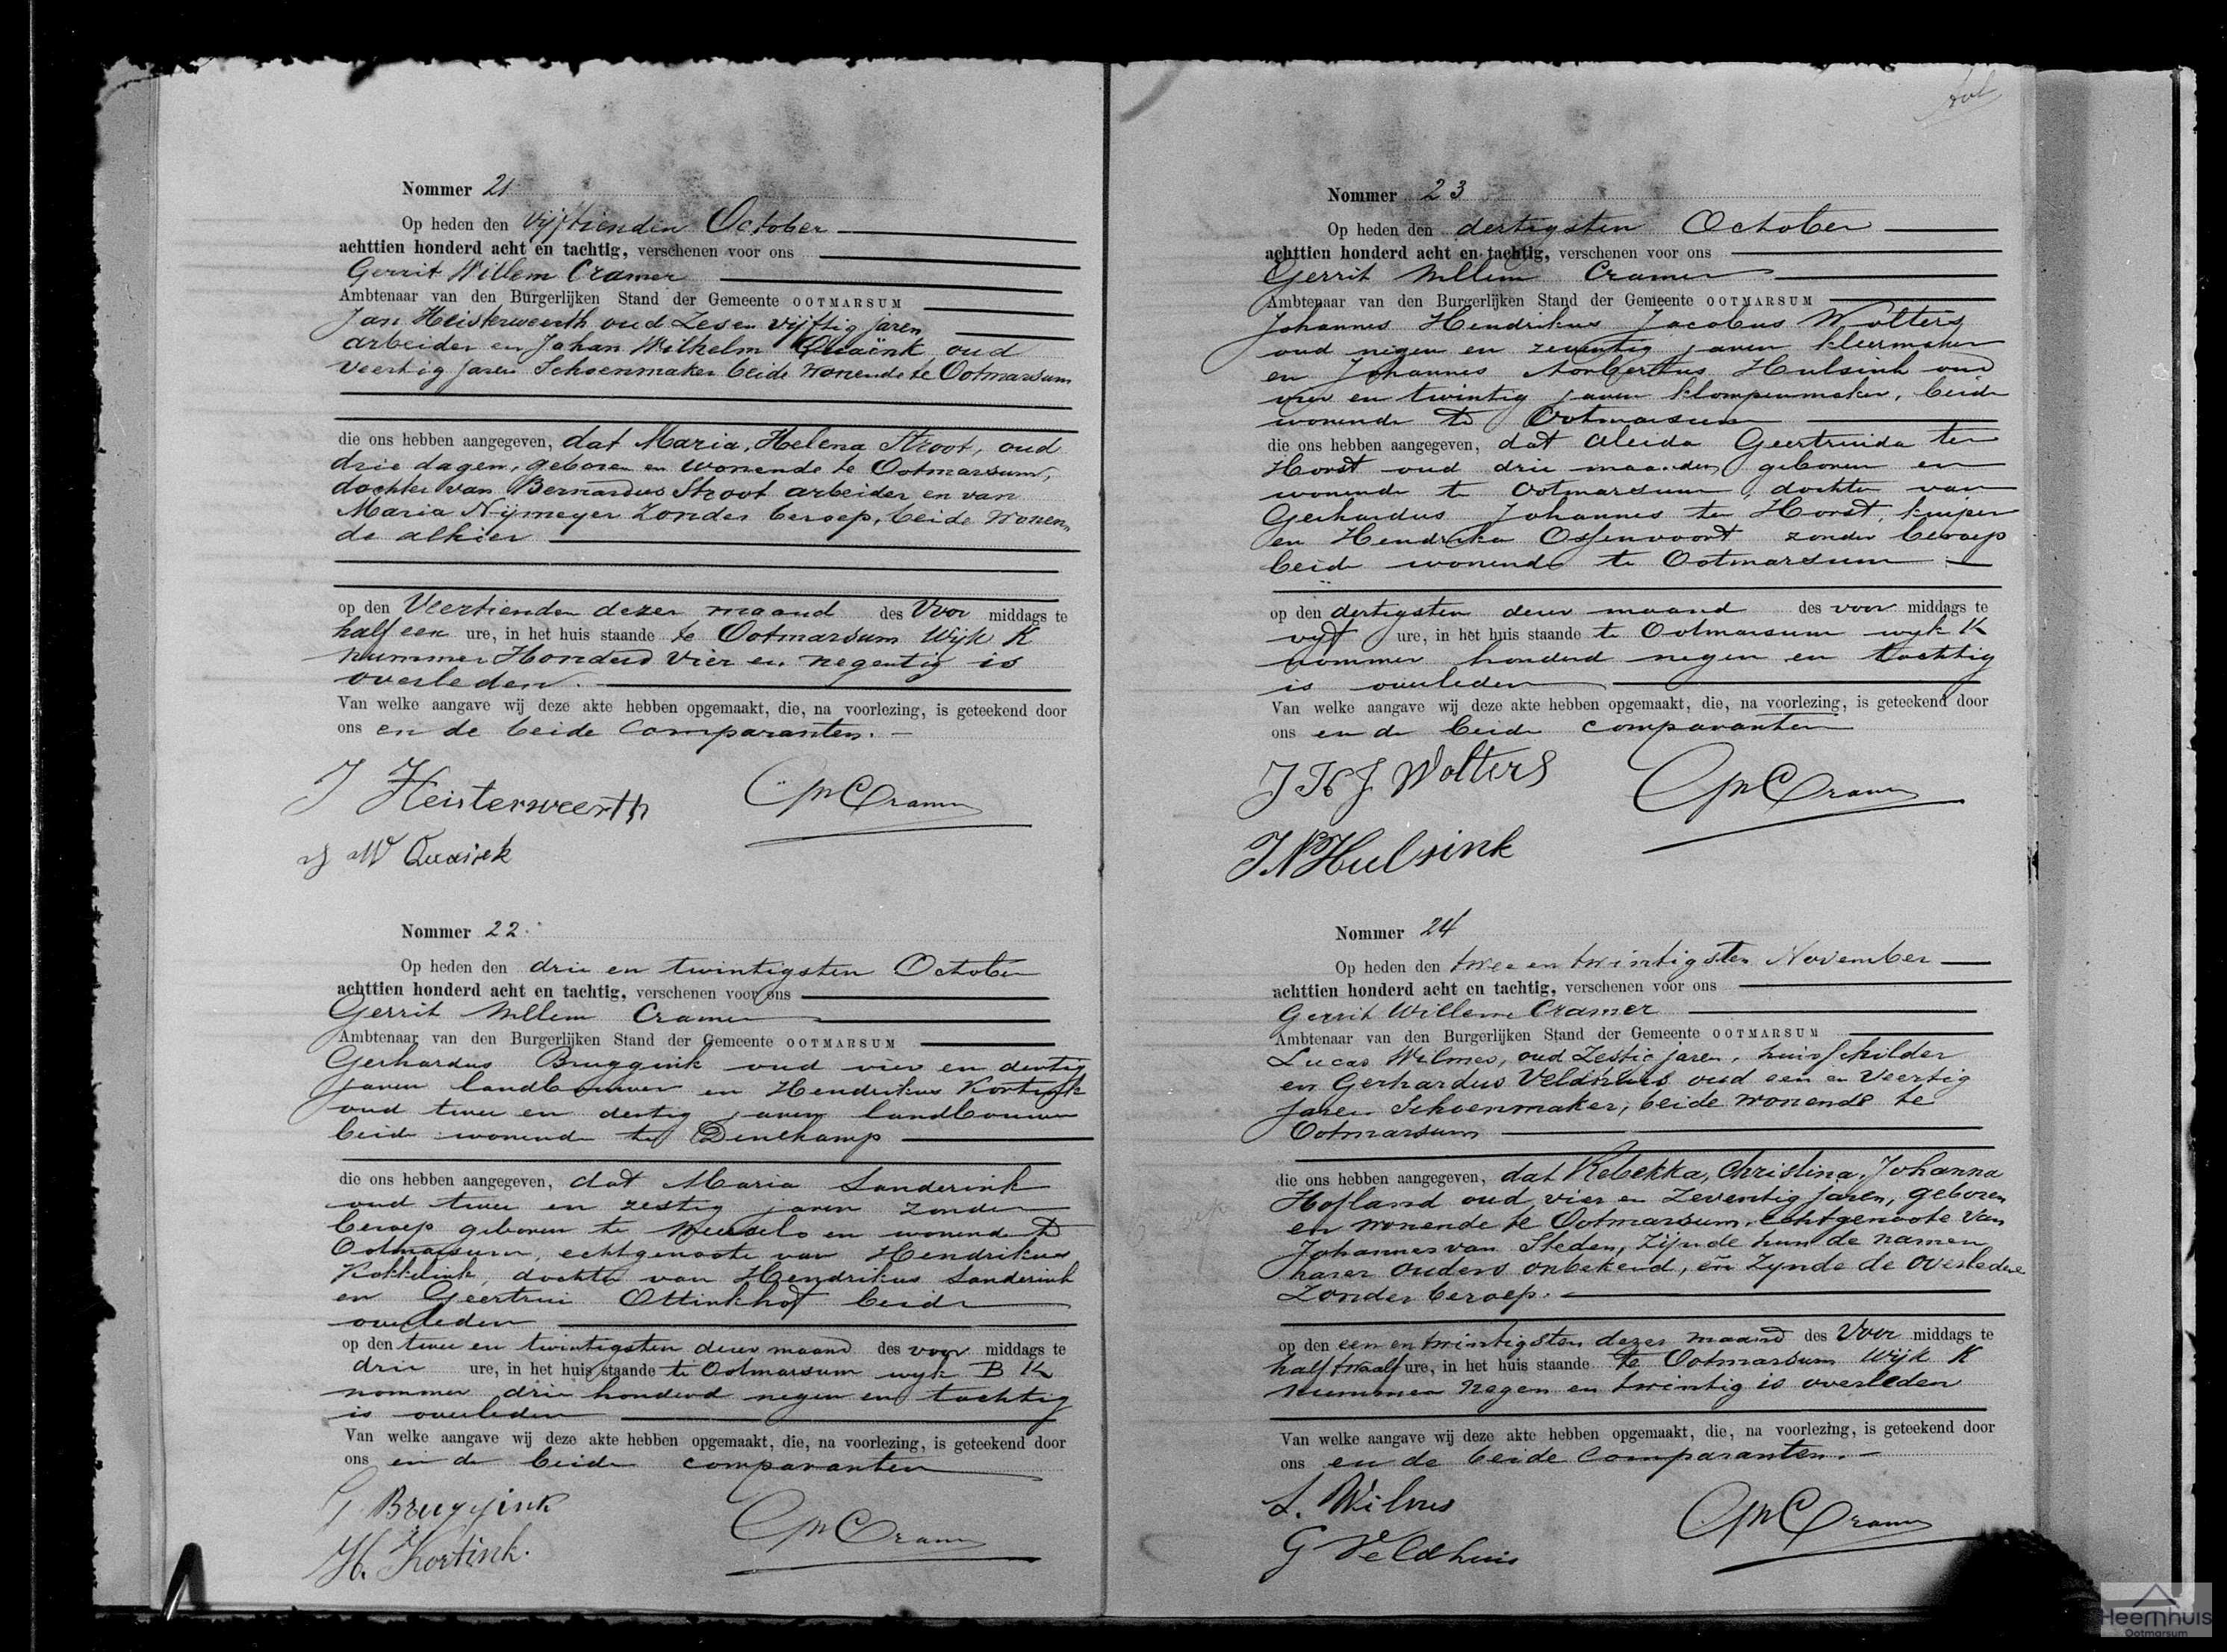 Nommer 21
Op heden den vijftienden October
achttien honderd acht en tachtig, verschenen voor ons
Gerrit Willem Cramer
Ambtenaar van den Burgerlijken Stand der Gemeente OOTMARSUM
Jan Heisterweerth oud Zes en vijftig jaren
arbeider en Johan Wilhelm Quaïnk oud
veertig jaren Schoenmaker beide wonende te Ootmarsum
die ons hebben aangegeven, dat Maria, Helena Stroot, oud
drie dagen, geboren en wonende te Ootmarsum,
dochter van Bernardus Stroot arbeider en van
Maria Nijmeyer zonder beroep, beide wonen
de alhier
op den Veertienden dezer maand des Voor middags te
half een ure, in het huis staande te Ootmarsum Wijk K
nummer Honderd vier en negentig is
overleden.
Van welke aangave wij deze akte hebben opgemaakt, die, na voorlezing, is geteekend door
ons en de beide Comparanten.
J Heisterweerth GWCramer
J W Quaink
Nommer 22.
Op heden den drie en twintigsten October
achttien honderd acht en tachtig, verschenen voor ons
Gerrit Willem Cramer
Ambtenaar van den Burgerlijken Stand der Gemeente OOTMARSUM
Gerhardus Bruggink oud vier en dertig
jaren landbouwer en Hendrikus Kortink
oud twee en dertig jaren landbouwer
beide wonende te Denekamp
die ons hebben aangegeven, dat Maria Sanderink
oud twee en zestig jaren zonder
beroep geboren te en wonende te
Ootmarsum, echtgenoote van Hendrikus
Kokkelink, dochter van Hendrikus Sanderink
en Geertrui Ottinkhof beide
overleden
op den twee en twintigsten dezer maand des voor middags te
drie ure, in het huis staande te Ootmarsum wyk B K
nommer drie honderd negen en tachtig
is overleden
Van welke aangave wij deze akte hebben opgemaakt, die, na voorlezing, is geteekend door
ons en de beide comparanten
G Bruggink GWCramer
H. Kortink.
Nommer 23
Op heden den dertigsten October
achttien honderd acht en tachtig, verschenen voor ons
Gerrit Willem Cramer
Ambtenaar van den Burgerlijken Stand der Gemeente OOTMARSUM
Johannes Hendrikus Jacobus Wolters
oud negen en zeventig jaren kleermaker
en Johannes Norbertus Hulsink oud
vier en twintig jaren klompenmaker, beide
wonende te Ootmarsum
die ons hebben aangegeven, dat Aleida Geertruida ter
Horst oud drie maanden geboren en
wonende te Ootmarsum, dochter van
Gerhardus Johannes ter Horst, kuiper
en Hendrika Ossenvoort zonder beroep
beide wonende te Ootmarsum
op den dertigsten dezer maand des voor middags te
vijf ure, in het huis staande te Ootmarsum wyk K
nommer honderd negen en tachtig
is overleden
Van welke aangave wij deze akte hebben opgemaakt, die, na voorlezing, is geteekend door
ons en de beide comparanten
J H J Wolters GWCramer
J N Hulsink
Nommer 24
Op heden den twee en twintigsten November
achttien honderd acht en tachtig, verschenen voor ons
Gerrit Willem Cramer
Ambtenaar van den Burgerlijken Stand der Gemeente OOTMARSUM
Lucas Wilmes, oud Zestig jaren, huisschilder
en Gerhardus Veldhuis oud een en Veertig
jaren Schoenmaker, beide wonende te
Ootmarsum
die ons hebben aangegeven, dat Rebekka, Christina, Johanna
Hofland oud vier en zeventig jaren, geboren
en wonende te Ootmarsum, echtgenoote van
Johannes van Steden, Zijnde hun de namen
harer ouders onbekend, en Zynde de overledene
Zonder beroep.
op den een en twintigsten dezer maand des Voor middags te
half twaalf ure, in het huis staande te Ootmarsum Wijk K
nummer negen en twintig is overleden
Van welke aangave wij deze akte hebben opgemaakt, die, na voorlezing, is geteekend door
ons en de beide Comparanten.
L. Wilmes GWCramer
G Veldhuis
Heemhuis
Ootmarsum